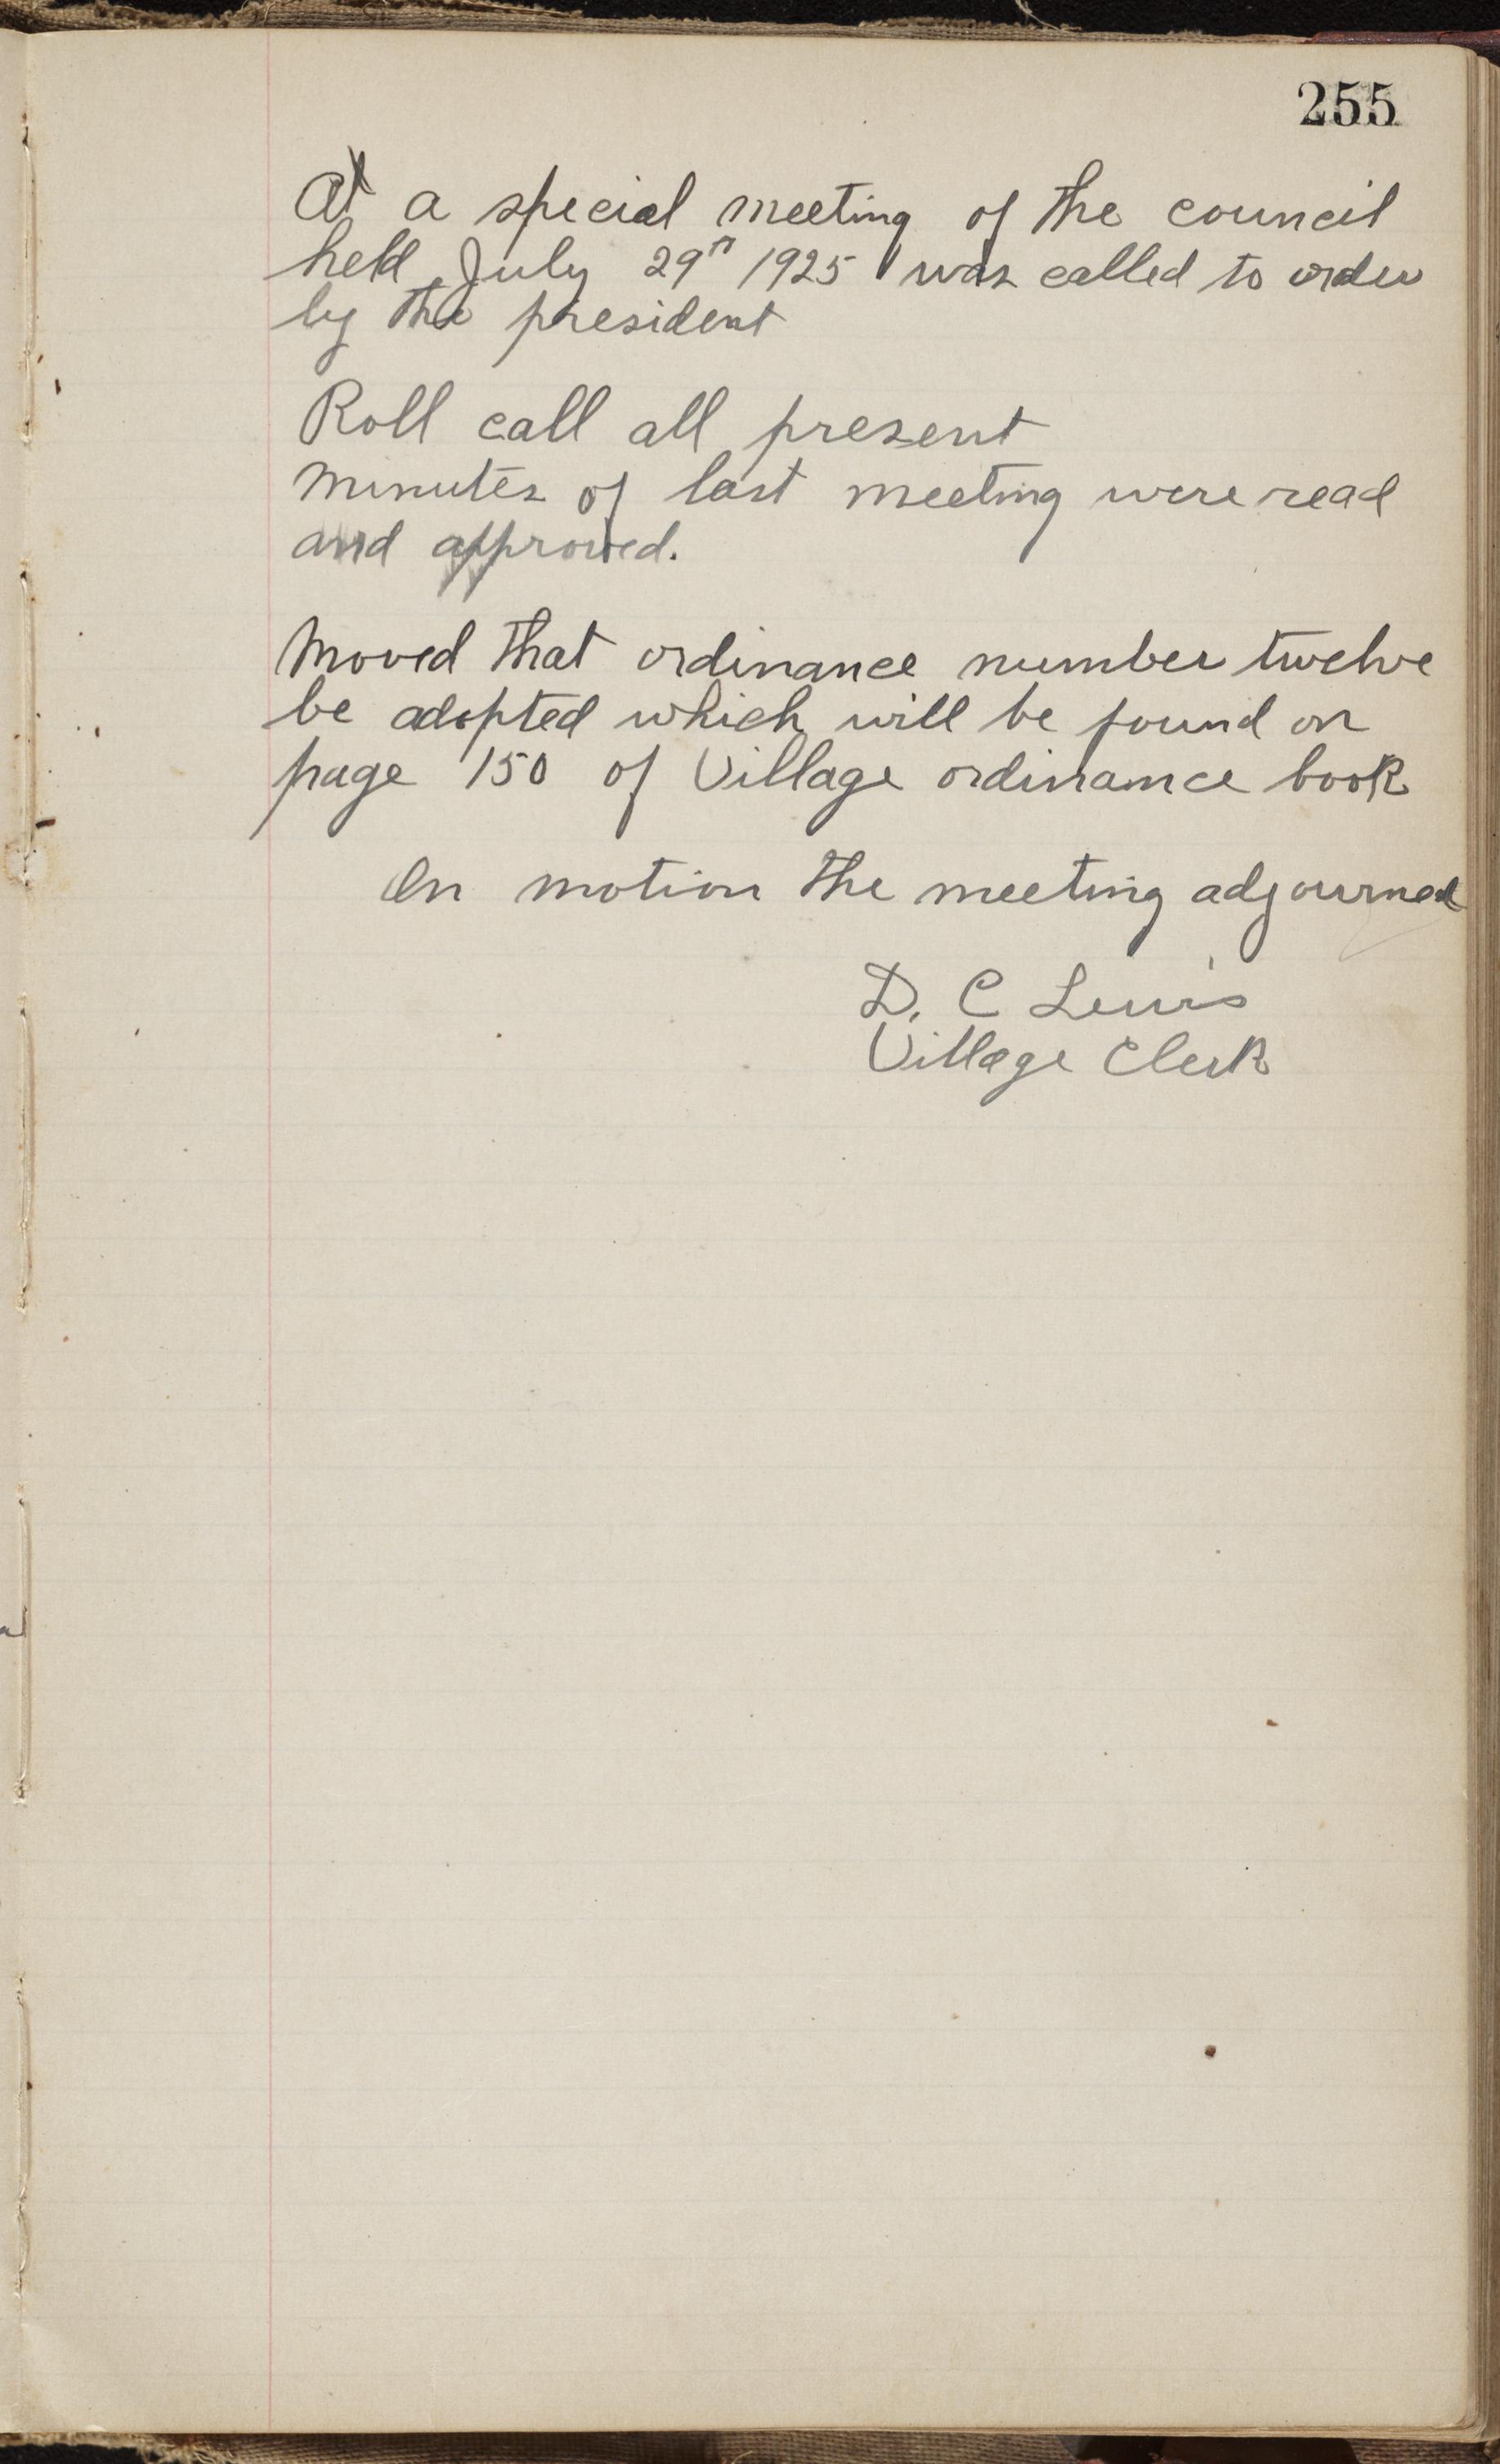 255
At a special meeting of the council
held July 29th 1925 was called to order
by the president
Roll call all present
minutes of last meeting were read
and approved.
Moved that ordinance number twelve
be adopted which will be found on
page 150 of Village ordinance book
On motion the meeting adjourned
D. C Lewis
Village Clerk